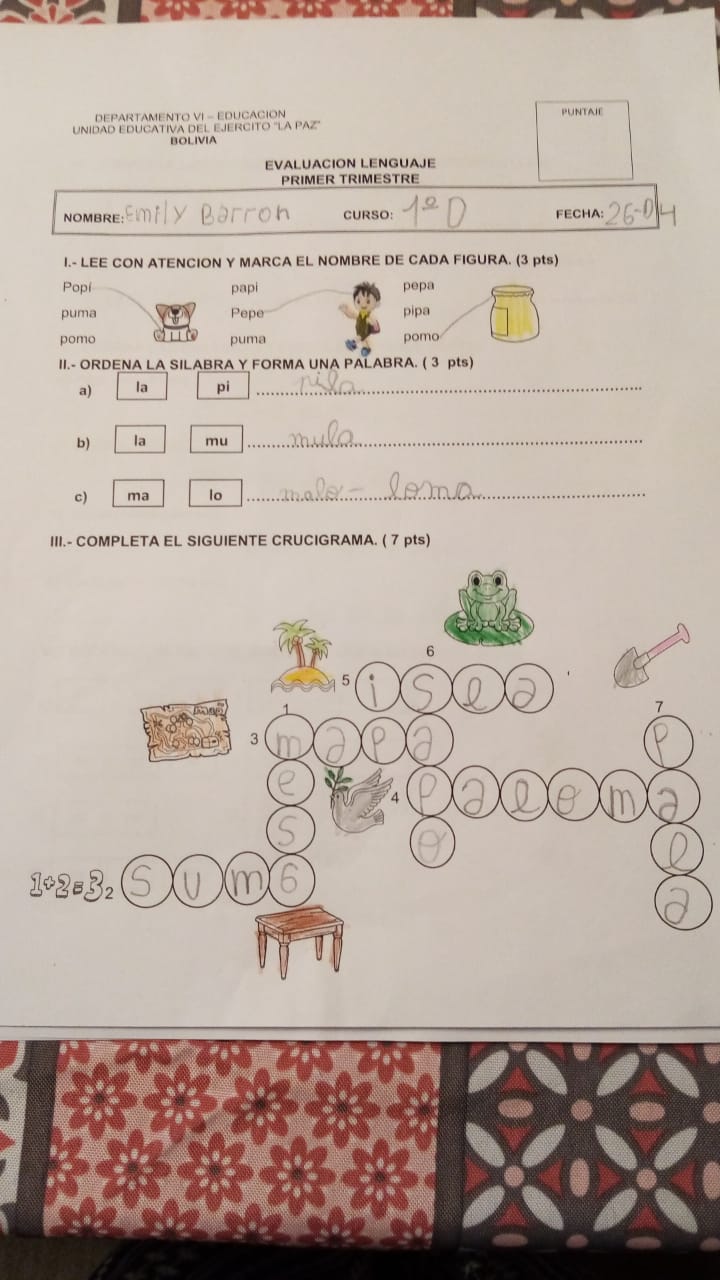 DEPARTAMENTO VI – EDUCACION
UNIDAD EDUCATIVA DEL EJERCITO "LA PAZ"
BOLIVIA
PUNTAJE
EVALUACION LENGUAJE
PRIMER TRIMESTRE
NOMBRE: Emily Barron CURSO: 1º D FECHA: 26-04
I.- LEE CON ATENCION Y MARCA EL NOMBRE DE CADA FIGURA. (3 pts)
Popi papi pepa
puma Pepe pipa
pomo puma pomo
II.- ORDENA LA SILABRA Y FORMA UNA PALABRA. ( 3 pts)
a) la pi pila
b) la mu mula
c) ma lo malo – loma
III.- COMPLETA EL SIGUIENTE CRUCIGRAMA. ( 7 pts)
6
5 i s l a
1 7
3 m a p a p
e 4 p a l o m a
s o l
1+2=3 2 s u m a a